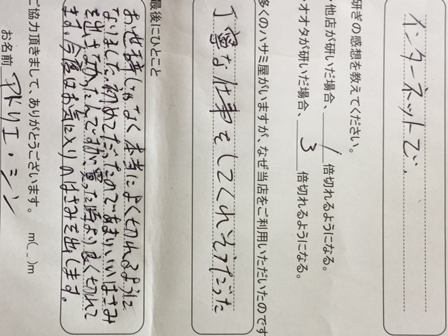 インターネットで、
研ぎの感想を教えてください。
他店が研いだ場合、 1 倍切れるようになる。
オオタが研いだ場合、 3 倍切れるようになる。
多くのハサミ屋がいますが、なぜ当店をご利用いただいたのです
丁寧な仕事をしてくれそうだった
最後にひとこと
お世辞じゃなく本当によく切れるように
なりました。初めてだったのであまりいいはさみ
を出さなかったんですが、買った時より良く切れて
ます。今度はお気に入りのはさみを出します。
ご協力頂きまして、ありがとうございます。 m(_ _)m
お名前 アトリエ・シン